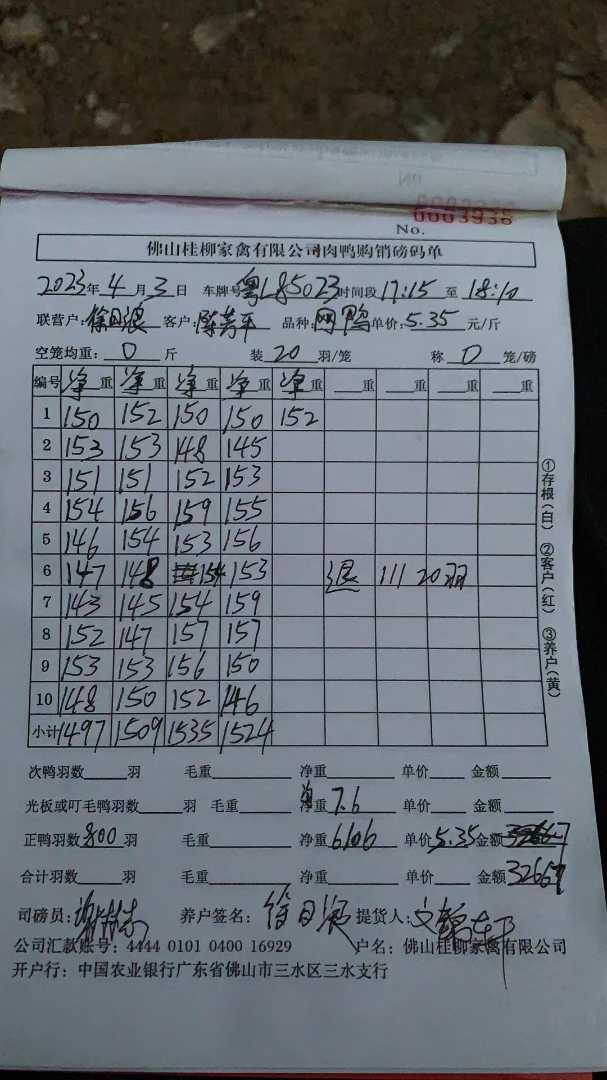 No.
0003936
佛山桂柳家禽有限公司肉鸭购销磅码单
2023年4月3日 车牌号粤L85023时间段17:15至18:10
联营户: 客户:陈芳平 品种: 单价:5.35元/斤
空笼均重:0斤 装20羽/笼 称0笼/磅
编号 净重 净重 净重 净重 净重 重 重 重 重
1 150 152 150 150 152
2 153 153 148 145
3 151 151 152 153
4 154 156 159 155
5 146 154 153 156
6 147 148 154 153 退 111 20羽
7 143 145 154 159
8 152 147 157 157
9 153 153 156 150
10 148 150 152 146
小计 1497 1509 1535 1524
①存根(白) ②客户(红) ③养户(黄)
次鸭羽数 羽 毛重 净重 单价 金额
光板或叮毛鸭羽数 羽 毛重 净重7.6 单价 金额
正鸭羽数800羽 毛重 净重6106 单价5.35金额
合计羽数 羽 毛重 净重 单价 金额32667
司磅员: 养户签名: 提货人:
公司汇款账号:4444 0101 0400 16929 户名:佛山桂柳家禽有限公司
开户行:中国农业银行广东省佛山市三水区三水支行